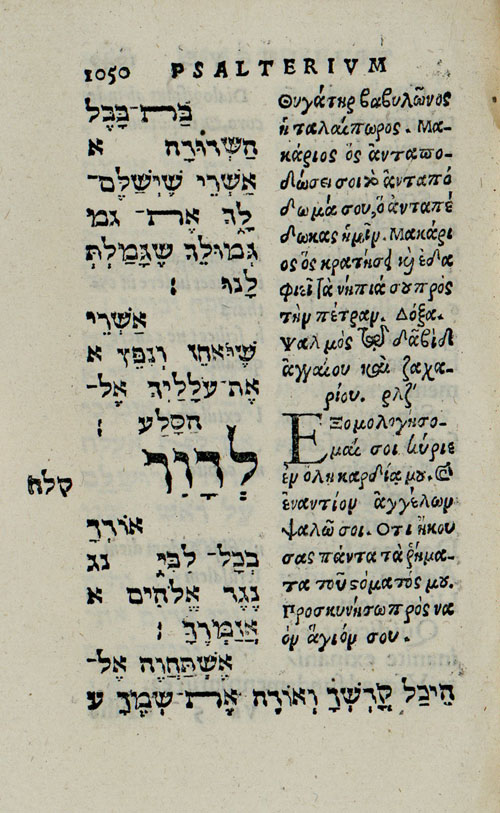 1050 PSALTERIVM
בַּת־בָּבֶל
הַשְּׁדוּדָה א
אַשְׁרֵי שֶׁיְשַׁלֶּם־
לָךְ אֶת־ גמו
גְּמוּלֵךְ שֶׁגָּמַלְתְּ
לָנוּ :
אַשְׁרֵי
שֶׁיֹּאחֵז וְנִפֵּץ א
אֶת־עֹלָלַיִךְ אֶל־
הַסָּלַע :
לְדָוִד
קלח
אוֹדְךָ
בְכָל־ לִבִּי נג
נֶגֶד אֱלֹהִים א
אֲזַמְּרֶךָּ :
אֶשְׁתַּחֲוֶה אֶל־
הֵיכַל קָדְשְׁךָ וְאוֹדֶה אֶת־שְׁמֶךָ ע
Θυγάτηρ βαβυλῶνος
ἡ ταλαίπωρος. Μα-
κάριος ὃς ἀνταπο-
δώσει σοι τὸ ἀνταπό
δωμά σου, ὃ ἀνταπέ
δωκας ἡμῖν. Μακάρι
ος ὃς κρατήσει καὶ ἐδα
φιεῖ τὰ νήπιά σου πρὸς
τὴν πέτραν. Δόξα.
Ψαλμὸς τῷ δαβὶδ
ἀγγαίου καὶ ζαχα-
ρίου. ρλζʹ
Εξομολογήσο-
μαί σοι κύριε
ἐν ὅλῃ καρδίᾳ μου. καὶ
ἐναντίον ἀγγέλων
ψαλῶ σοι. Οτι ἤκου
σας πάντα τὰ ῥήμα-
τα τοῦ στόματός μου.
Προσκυνήσω πρὸς να
ὸν ἅγιόν σου.